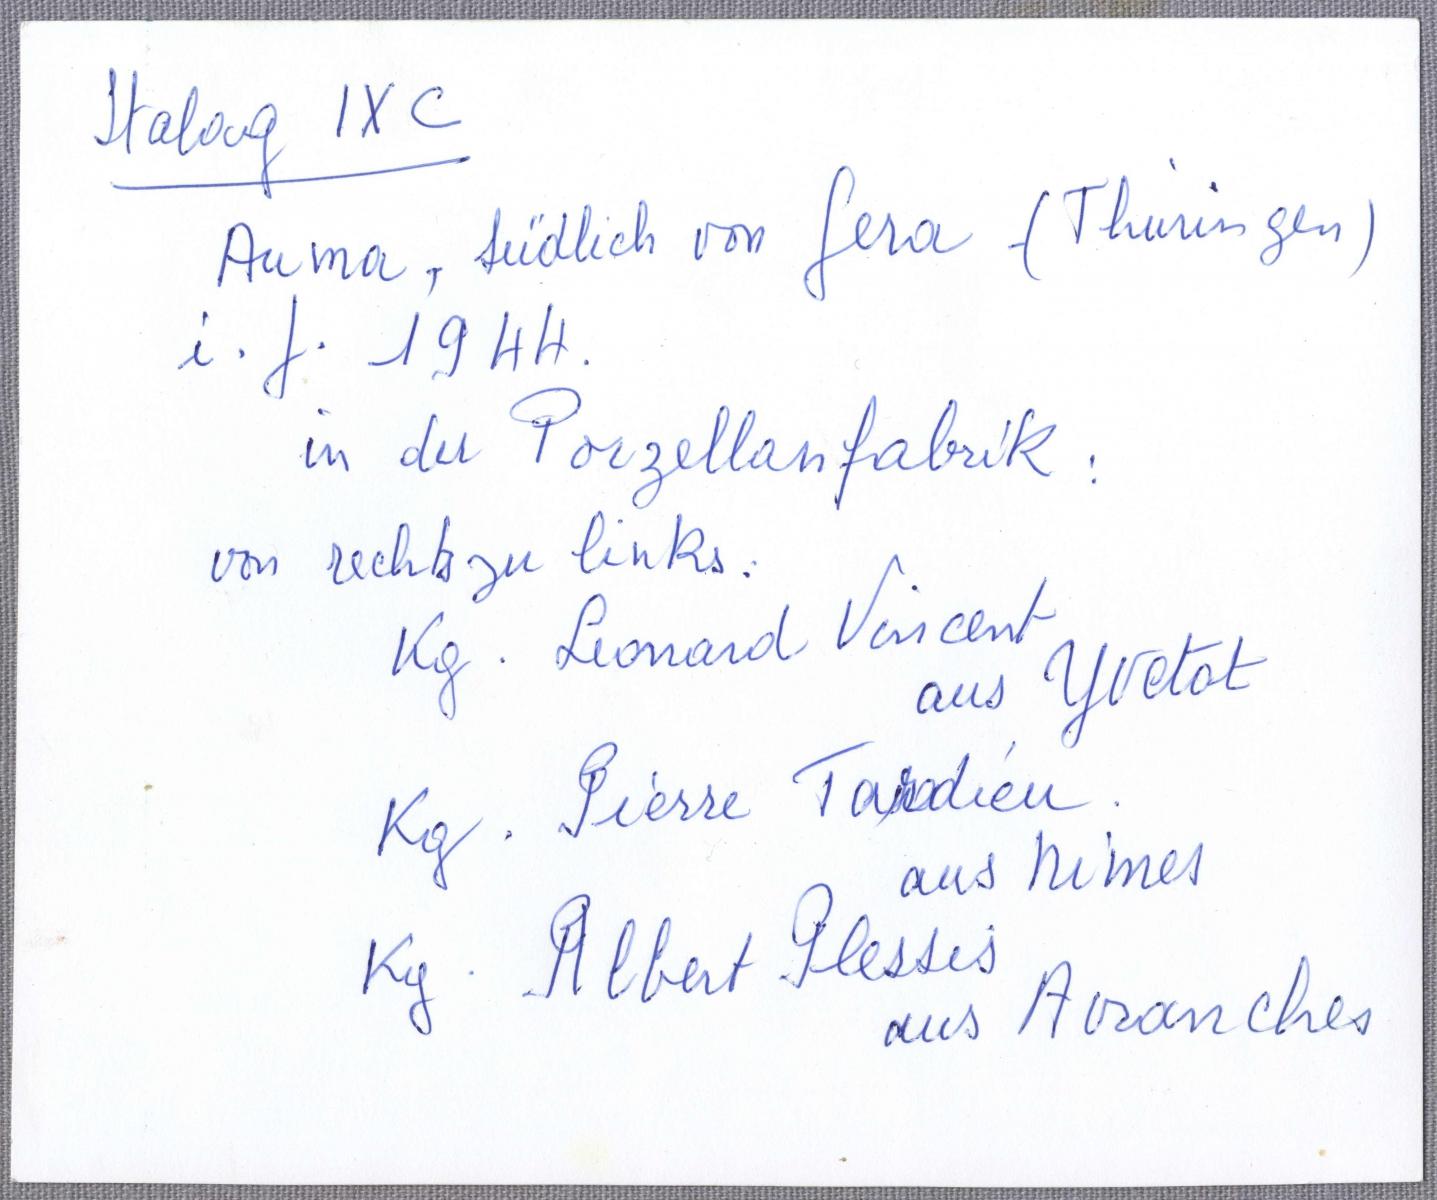 Stalag IX C
Auma, südlich von Gera (Thüringen)
i. J. 1944.
in der Porzellanfabrik:
von rechts zu links:
Kg. Léonard Vincent
aus Yvetot
Kg. Pierre Tardieu.
aus Nimes
Kg. Albert Plessis
aus Avranches